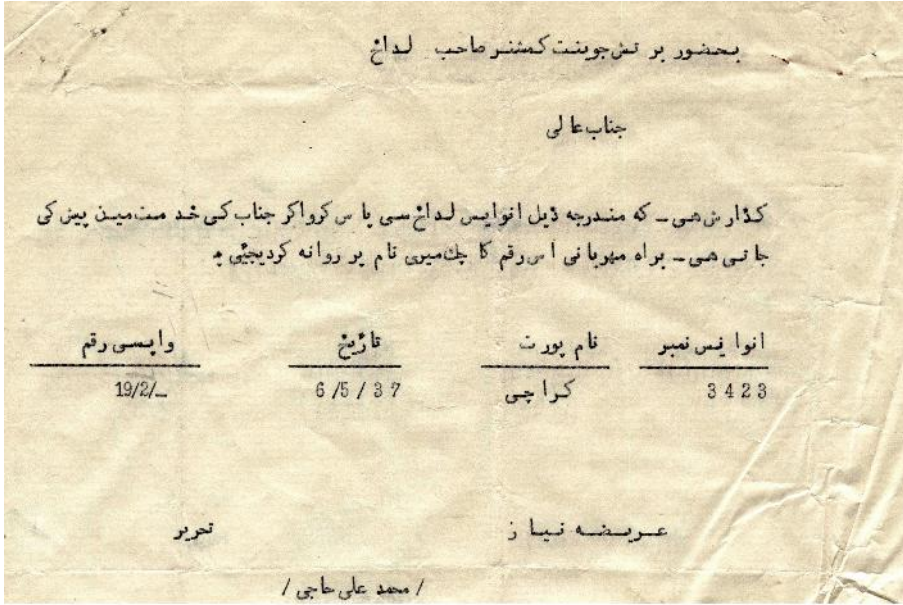 بحضور بر تش جوینت کمشنر صاحب لداخ
جناب عا لی
کذار ش هی ـ که مندرجه ذیل انوایس لداخ سی پا س کرواکر جناب کی خد مت مین پیش کی
جا تی هی ـ براه مهربا نی اس رقم کا چك میری نام پر روانه کردیجئی
انوا ئیس نمبر نام پورٹ تاریخ واپسی رقم
3423 کرا چی 6/5/37 19/2/_
عریضه نیا ز تحریر
/ محمد علی حاجی /